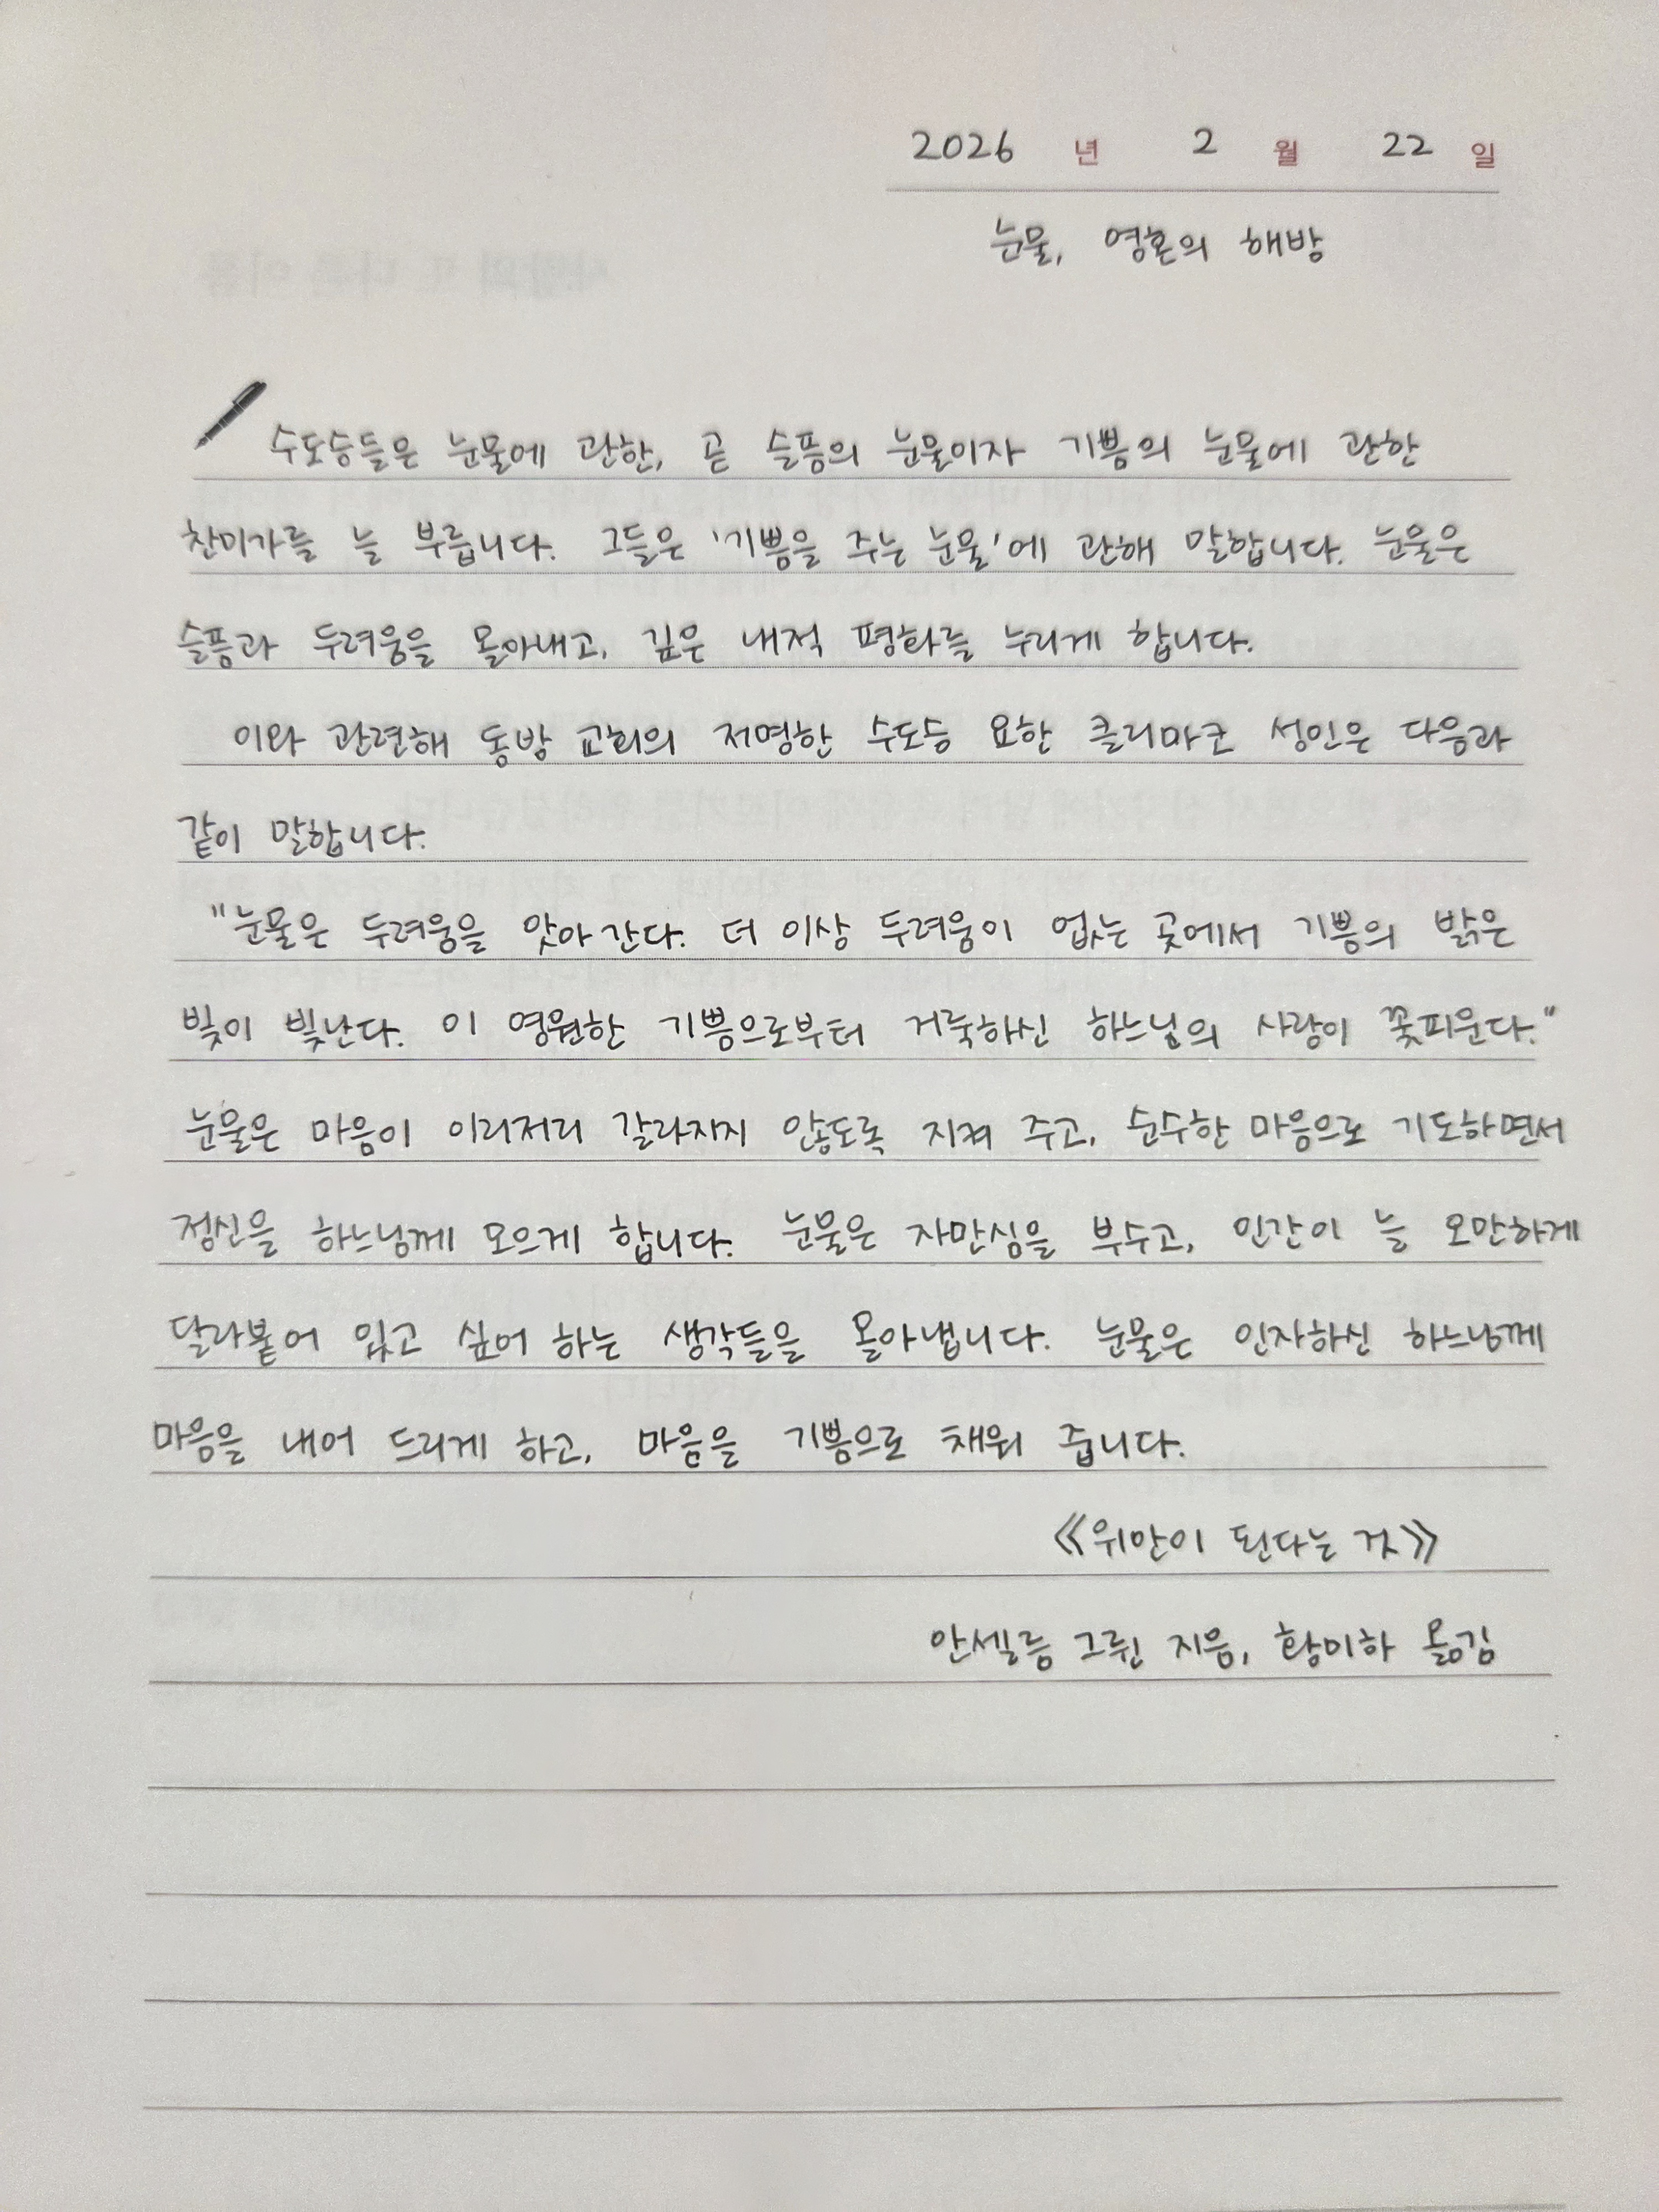 2026 년 2 월 22 일
눈물, 영혼의 해방
수도승들은 눈물에 관한, 곧 슬픔의 눈물이자 기쁨의 눈물에 관한
찬미가를 늘 부릅니다. 그들은 '기쁨을 주는 눈물'에 관해 말합니다. 눈물은
슬픔과 두려움을 몰아내고, 깊은 내적 평화를 누리게 합니다.
이와 관련해 동방 교회의 저명한 수도승 요한 클리마코 성인은 다음과
같이 말합니다.
"눈물은 두려움을 앗아 간다. 더 이상 두려움이 없는 곳에서 기쁨의 밝은
빛이 빛난다. 이 영원한 기쁨으로부터 거룩하신 하느님의 사랑이 꽃피운다."
눈물은 마음이 이리저리 갈라지지 않도록 지켜 주고, 순수한 마음으로 기도하면서
정신을 하느님께 모으게 합니다. 눈물은 자만심을 부수고, 인간이 늘 오만하게
달라붙어 있고 싶어 하는 생각들을 몰아냅니다. 눈물은 인자하신 하느님께
마음을 내어 드리게 하고, 마음을 기쁨으로 채워 줍니다.
《위안이 된다는 것》
안셀름 그륀 지음, 황미하 옮김